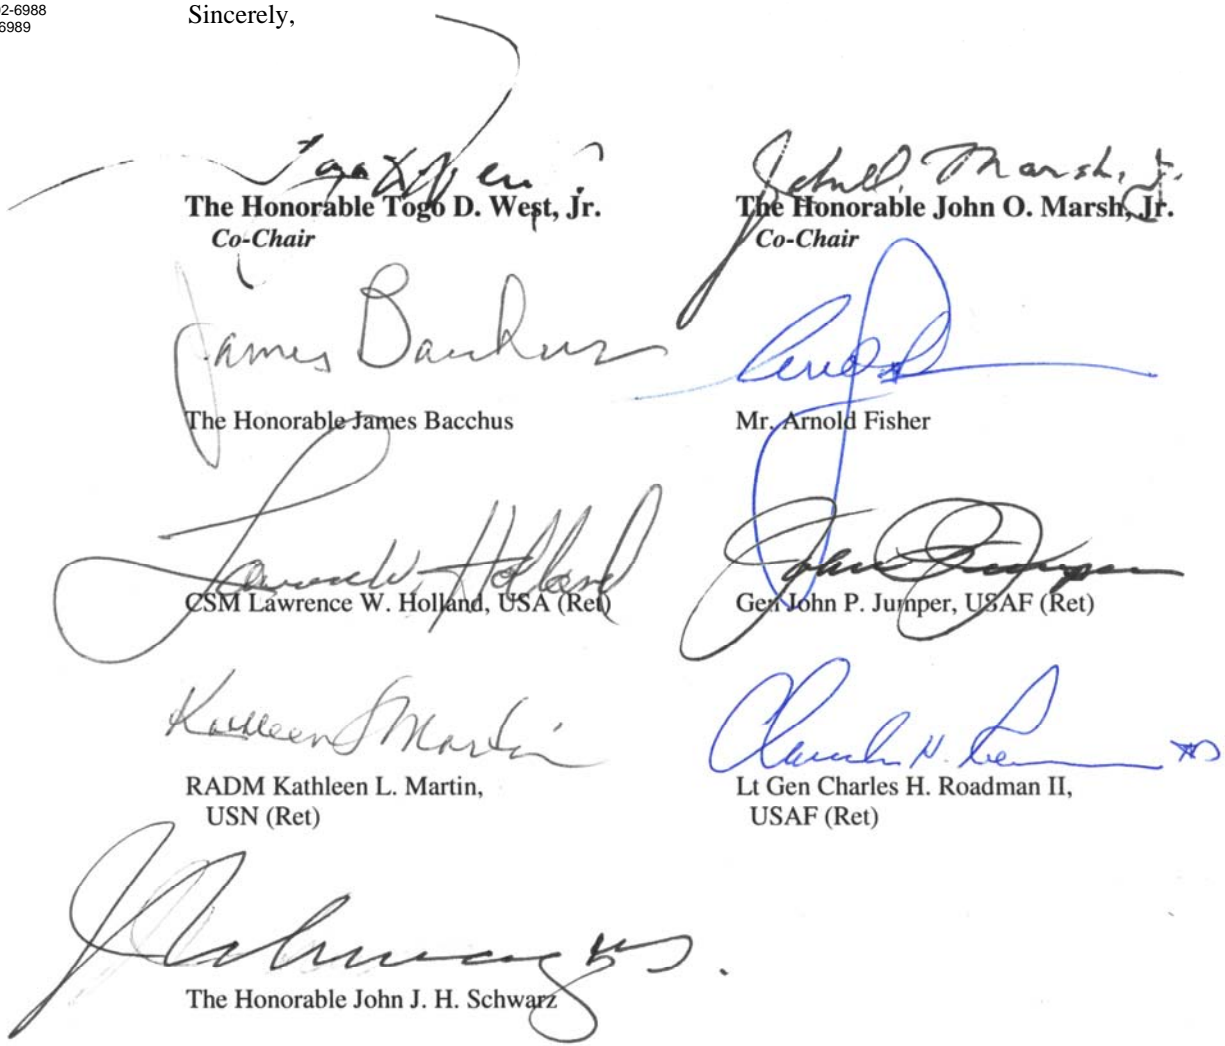 2-6988
6989
Sincerely,
Togo D. West, Jr.
The Honorable Togo D. West, Jr.
Co-Chair
John O. Marsh, Jr.
The Honorable John O. Marsh, Jr.
Co-Chair
James Bacchus
The Honorable James Bacchus
Mr. Arnold Fisher
Lawrence W. Holland
CSM Lawrence W. Holland, USA (Ret)
John Jumper
Gen John P. Jumper, USAF (Ret)
Kathleen L Martin
RADM Kathleen L. Martin,
USN (Ret)
Lt Gen Charles H. Roadman II,
USAF (Ret)
The Honorable John J. H. Schwarz